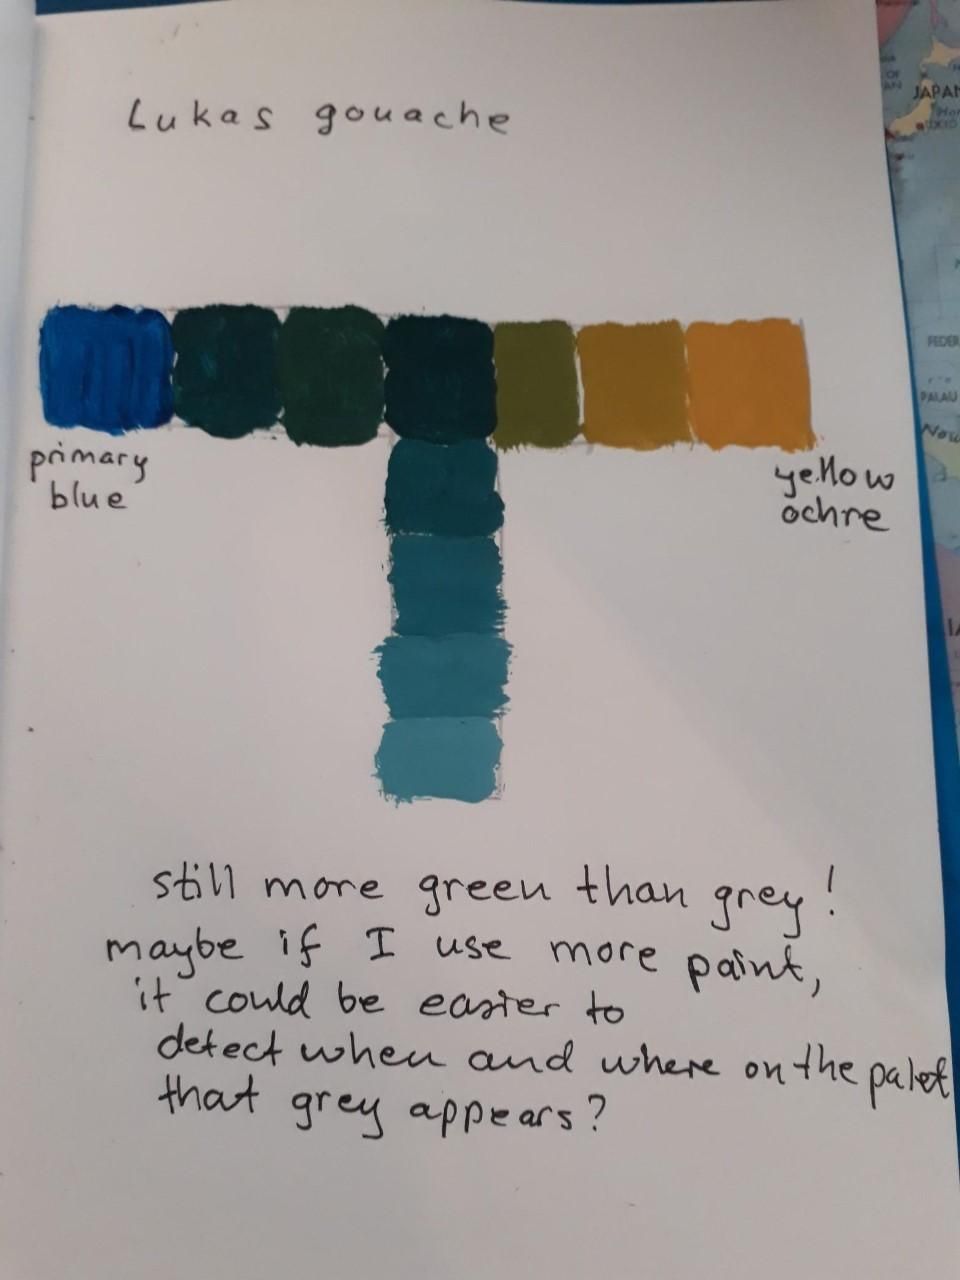 Lukas gouache
primary
blue
yellow
ochre
still more green than grey!
maybe if I use more paint,
it could be easier to
detect when and where on the palet
that grey appears?
JAPAN
PALAU